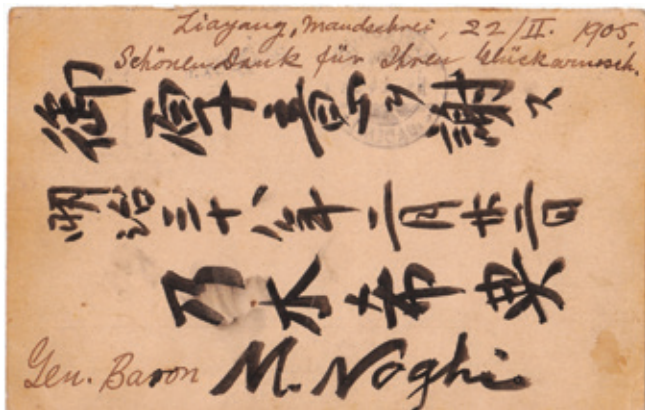 Liayang, Mandschrei, 22/II. 1905,
Schönen Dank für Ihren Glückwunsch.
御 ヲ謝ス
明治三十八年二月廿二日
乃木希典
Gen. Baron M. Noghi.